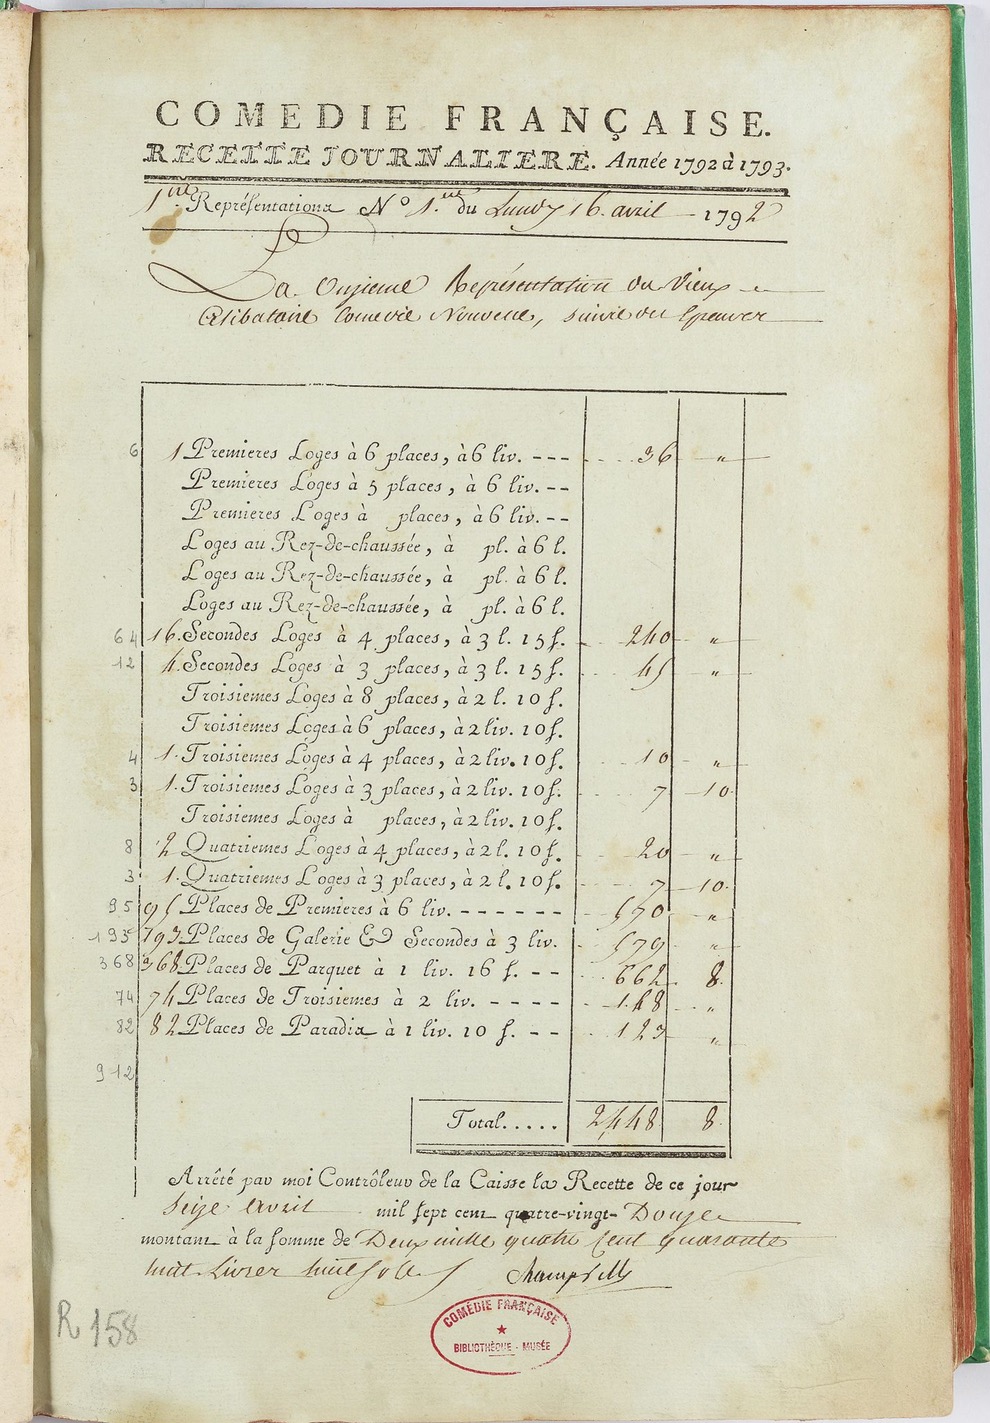 COMEDIE FRANÇAISE.
RECETTE JOURNALIERE. Année 1792 à 1793.
1re Représentations No 1re du Lundy 16 avril 1792
La Onzieme Représentation du Vieux
Celibataire Comedie Nouvelle, suivie des Epreuves
6 1 Premieres Loges à 6 places, à 6 liv. --- 36 "
Premieres Loges à 5 places, à 6 liv. --
Premieres Loges à places, à 6 liv. --
Loges au Rez-de-chaussée, à pl. à 6 l.
Loges au Rez-de-chaussée, à pl. à 6 l.
Loges au Rez-de-chaussée, à pl. à 6 l.
64 16. Secondes Loges à 4 places, à 3 l. 15 ſ. 240 "
12 4. Secondes Loges à 3 places, à 3 l. 15 ſ. 45 "
Troisiemes Loges à 8 places, à 2 l. 10 ſ.
Troisiemes Loges à 6 places, à 2 liv. 10 ſ.
4 1. Troisiemes Loges à 4 places, à 2 liv. 10 ſ. 10 "
3 1. Troisiemes Loges à 3 places, à 2 liv. 10 ſ. 7 10.
Troisiemes Loges à places, à 2 liv. 10 ſ.
8 2 Quatriemes Loges à 4 places, à 2 l. 10 ſ. 20 "
3 1. Quatriemes Loges à 3 places, à 2 l. 10 ſ. 7 10.
95 95 Places de Premieres à 6 liv. ------ 570 "
193 193 Places de Galerie & Secondes à 3 liv. 579 "
368 368 Places de Parquet à 1 liv. 16 ſ. -- 662 8.
74 74 Places de Troisiemes à 2 liv. ---- 148 "
82 82 Places de Paradis à 1 liv. 10 ſ. -- 123 "
912
Total..... 2448 8.
Arrêté par moi Contrôleur de la Caisse la Recette de ce jour
Seize avril mil ſept cent quatre-vingt- Douze
montant à la ſomme de Deux mille quatre Cent quarante
huit Livres huit sols
R 158
COMÉDIE FRANÇAISE
BIBLIOTHÈQUE - MUSÉE